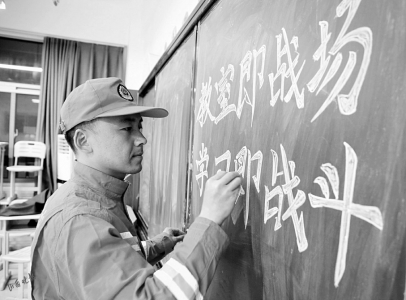 教室即战场
学习即战斗